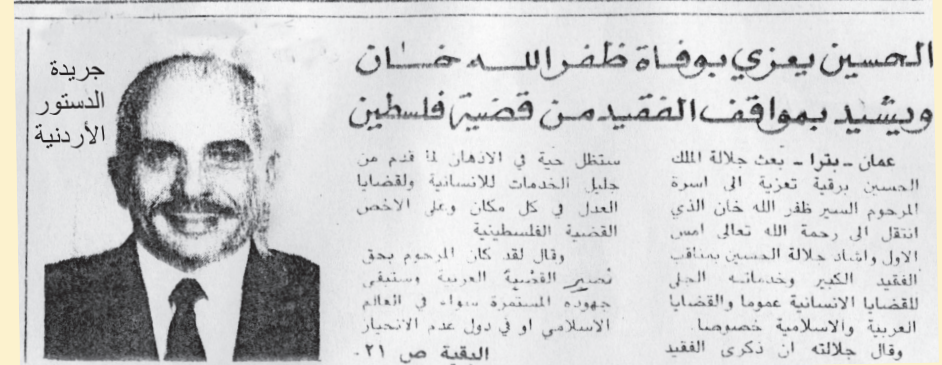 جريدة
الدستور
الأردنية
الحسين يعزي بوفاة ظفر الله خان
ويشيد بمواقف الفقيد من قضية فلسطين
عمان - بترا - بعث جلالة الملك
الحسين ببرقية تعزية الى اسرة
المرحوم السير ظفر الله خان الذي
انتقل الى رحمة الله تعالى امس
الاول واشاد جلالة الحسين بمناقب
الفقيد الكبير وخدماته الجلى
للقضايا الانسانية عموما والقضايا
العربية والاسلامية خصوصا.
وقال جلالته ان ذكرى الفقيد
ستظل حية في الاذهان لما قدم من
جليل الخدمات للانسانية ولقضايا
العدل في كل مكان وعلى الاخص
القضية الفلسطينية
وقال لقد كان المرحوم بحق
نصير القضية العربية وستبقى
جهوده المستمرة سواء في العالم
الاسلامي او في دول عدم الانحياز
البقية ص ٢١.